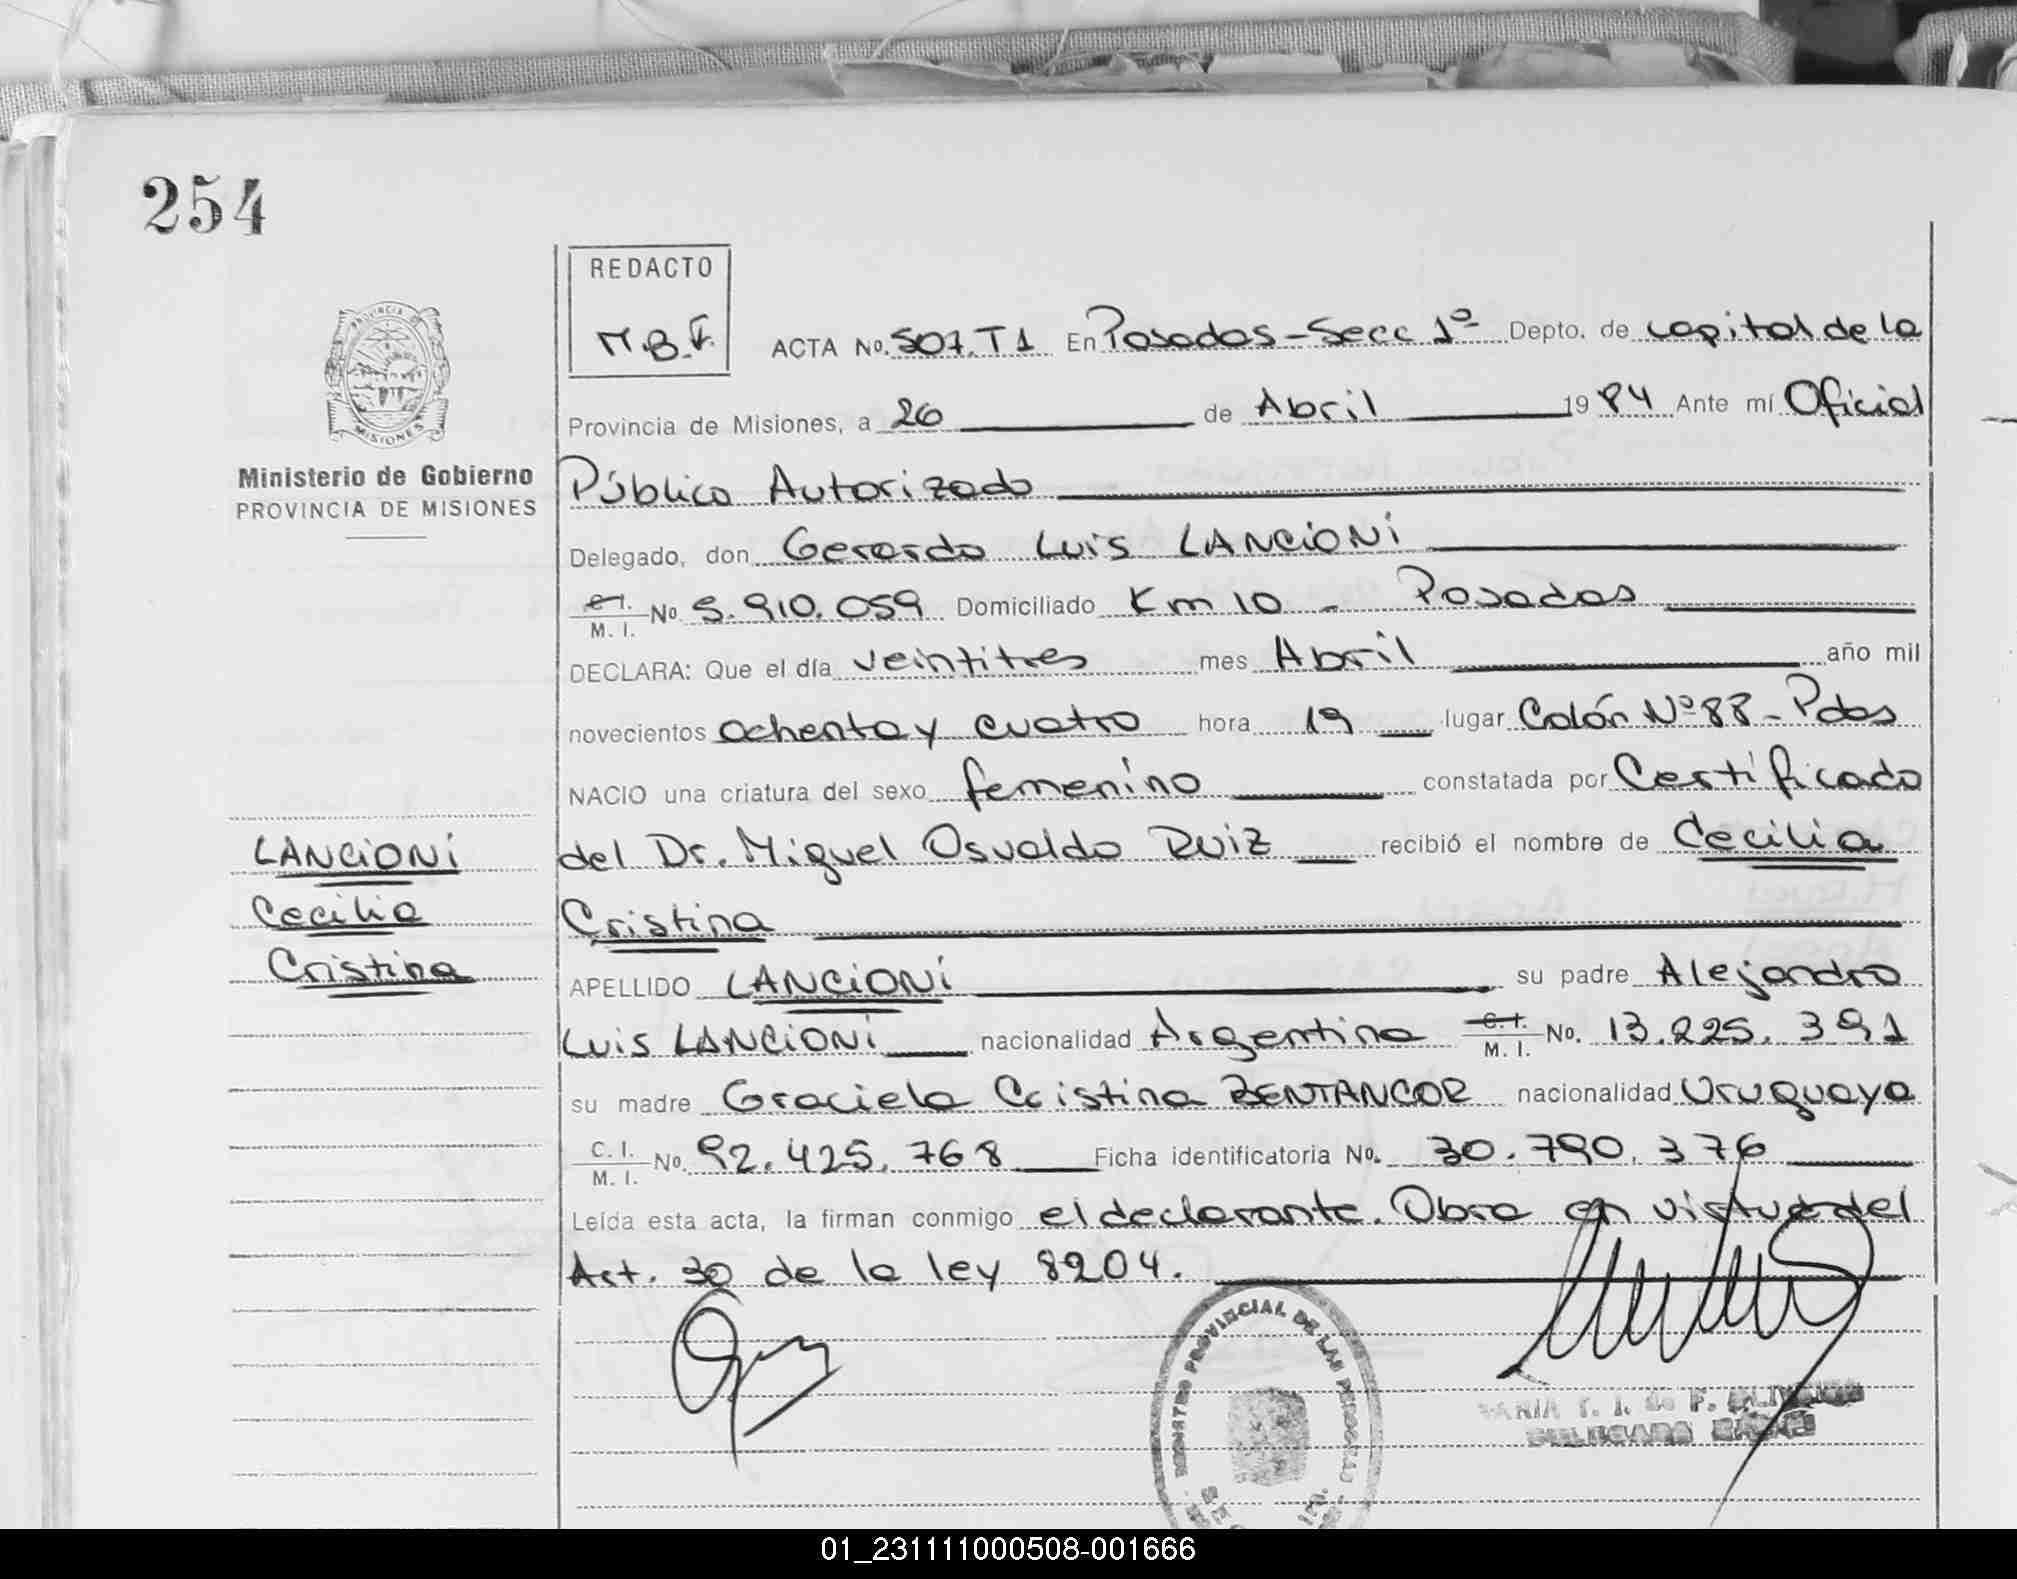 254
REDACTO
M.B.F.
ACTA No. 507.T1 En Posadas - Secc 1º Depto. de capital de la
Provincia de Misiones, a 26 de Abril 1984 Ante mí Oficial
Ministerio de Gobierno
PROVINCIA DE MISIONES
Público Autorizado
Delegado, don Gerardo Luis LANCIONI
C.I. M. I. No 5.910.059 Domiciliado Km 10 - Posadas
DECLARA: Que el día veintitres mes Abril año mil
novecientos ochenta y cuatro hora 19 lugar Colón Nº 88 - Pdas
NACIO una criatura del sexo femenino constatada por Certificado
LANCIONI
del Dr. Miguel Osvaldo RUIZ recibió el nombre de Cecilia
Cecilia
Cristina
Cristina
APELLIDO LANCIONI su padre Alejandro
Luis LANCIONI nacionalidad Argentina C.I. M. I. No. 13.225.391
su madre Graciela Cristina BENTANCOR nacionalidad Uruguaya
C. I. M. I. No. 92.425.768 Ficha identificatoria No. 30.790.376
Leída esta acta, la firman conmigo el declarante. Obra en virtud del
Art. 30 de la ley 8204.
REGISTRO PROVINCIAL DE LAS PERSONAS
01_231111000508-001666